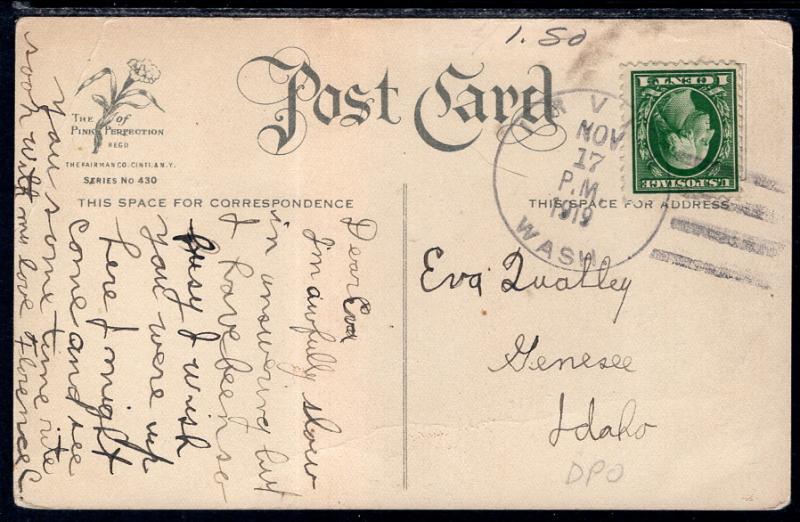 1.50
The of
Pink Perfection
REG'D
THE FAIRMAN CO. CINTI. & N.Y.
SERIES NO 430
Post Card
THIS SPACE FOR CORRESPONDENCE
THIS SPACE FOR ADDRESS
1 CENT 1
U.S. POSTAGE
NOV
17
P.M
1919
WASH
Dear Eva
I'm awfully slow
in unswering but
I have been so
busy I wish
you were up
here I might
come and see
you some time rite
soon with mu love Florence C
Eva Quatley
Genesee
Idaho
DPO